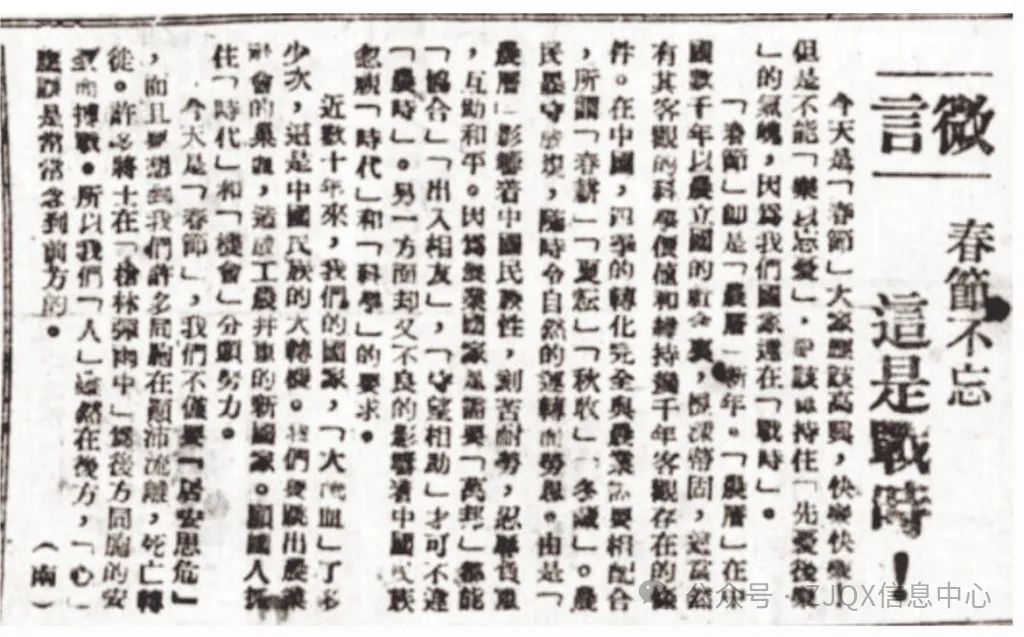 微言
春節不忘
這是戰時！
今天是「春節」大家應該高興，快樂快樂！
但是不能「樂以忘憂」，應該保持住「先憂後樂
」的氣魄，因為我們國家還在「戰時」。
「春節」即是「農曆」新年。「農曆」在中
國數千年以農立國的社會裏，根深蒂固，這當然
有其客觀的科學價值和維持幾千年客觀存在的條
件。在中國，四季的轉化完全與農業需要相配合
，所謂「春耕」「夏耘」「秋收」「冬藏」。農
民墨守，隨時令自然的運轉而勞息。由是「
農曆」影響着中國民族性，刻苦耐勞，忍辱負重
，互助和平。因為農業國家是需要「萬邦」都能
「協合」「出入相友」，「守望相助」才可不違
「農時」。另一方面却又不良的影響着中國民族
忽視「時代」和「科學」的要求。
近數十年來，我們的國家，「大流血」了多
少次，這是中國民族的大轉機。我們要跳出農業
社會的，造成工農并重的新國家。願國人抓
住「時代」和「機會」分頭努力。
今天是「春節」，我們不僅要「居安思危」
，而且要想到我們許多同胞在顛沛流離，死亡轉
徙。許多將士在「槍林彈雨中」為後方同胞的安
而搏戰。所以我們「人」雖然在後方，「心」
應該是常常念到前方的。
（南）
公众号·ZJQX信息中心